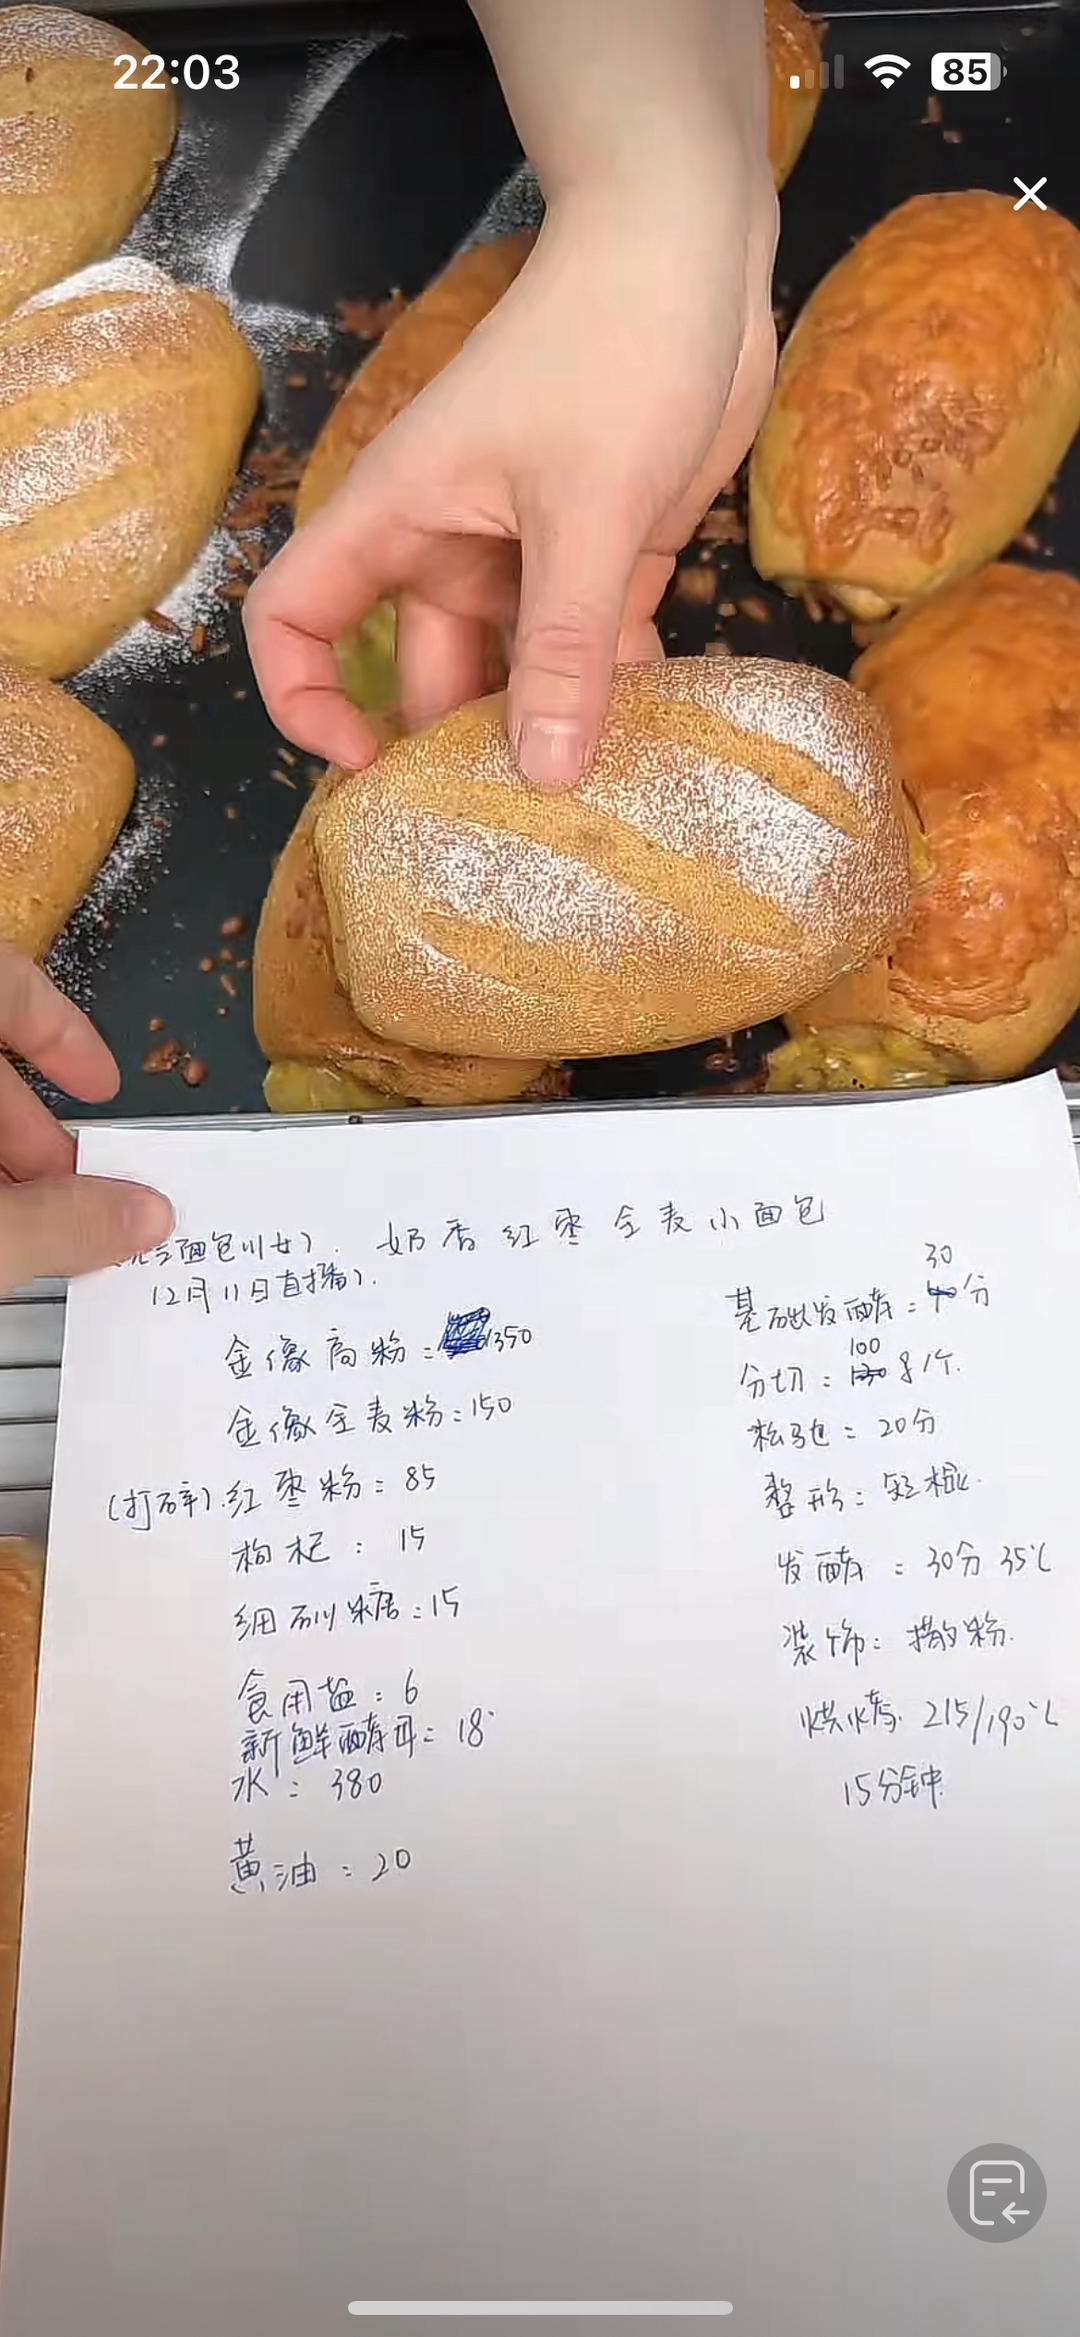 22:03
85
面包川女). 奶香红枣全麦小面包
12月11日直播).
金像高粉:350
金像全麦粉:150
(打碎).红枣粉:85
枸杞:15
细砂糖:15
食用盐:6
新鲜酵母:18
水:380
黄油:20
30
基础发酵:40分
100
分切:130g/个.
松弛:20分
整形:短棍.
发酵:30分 35℃
装饰:撒粉.
烘烤. 215/190℃
15分钟.